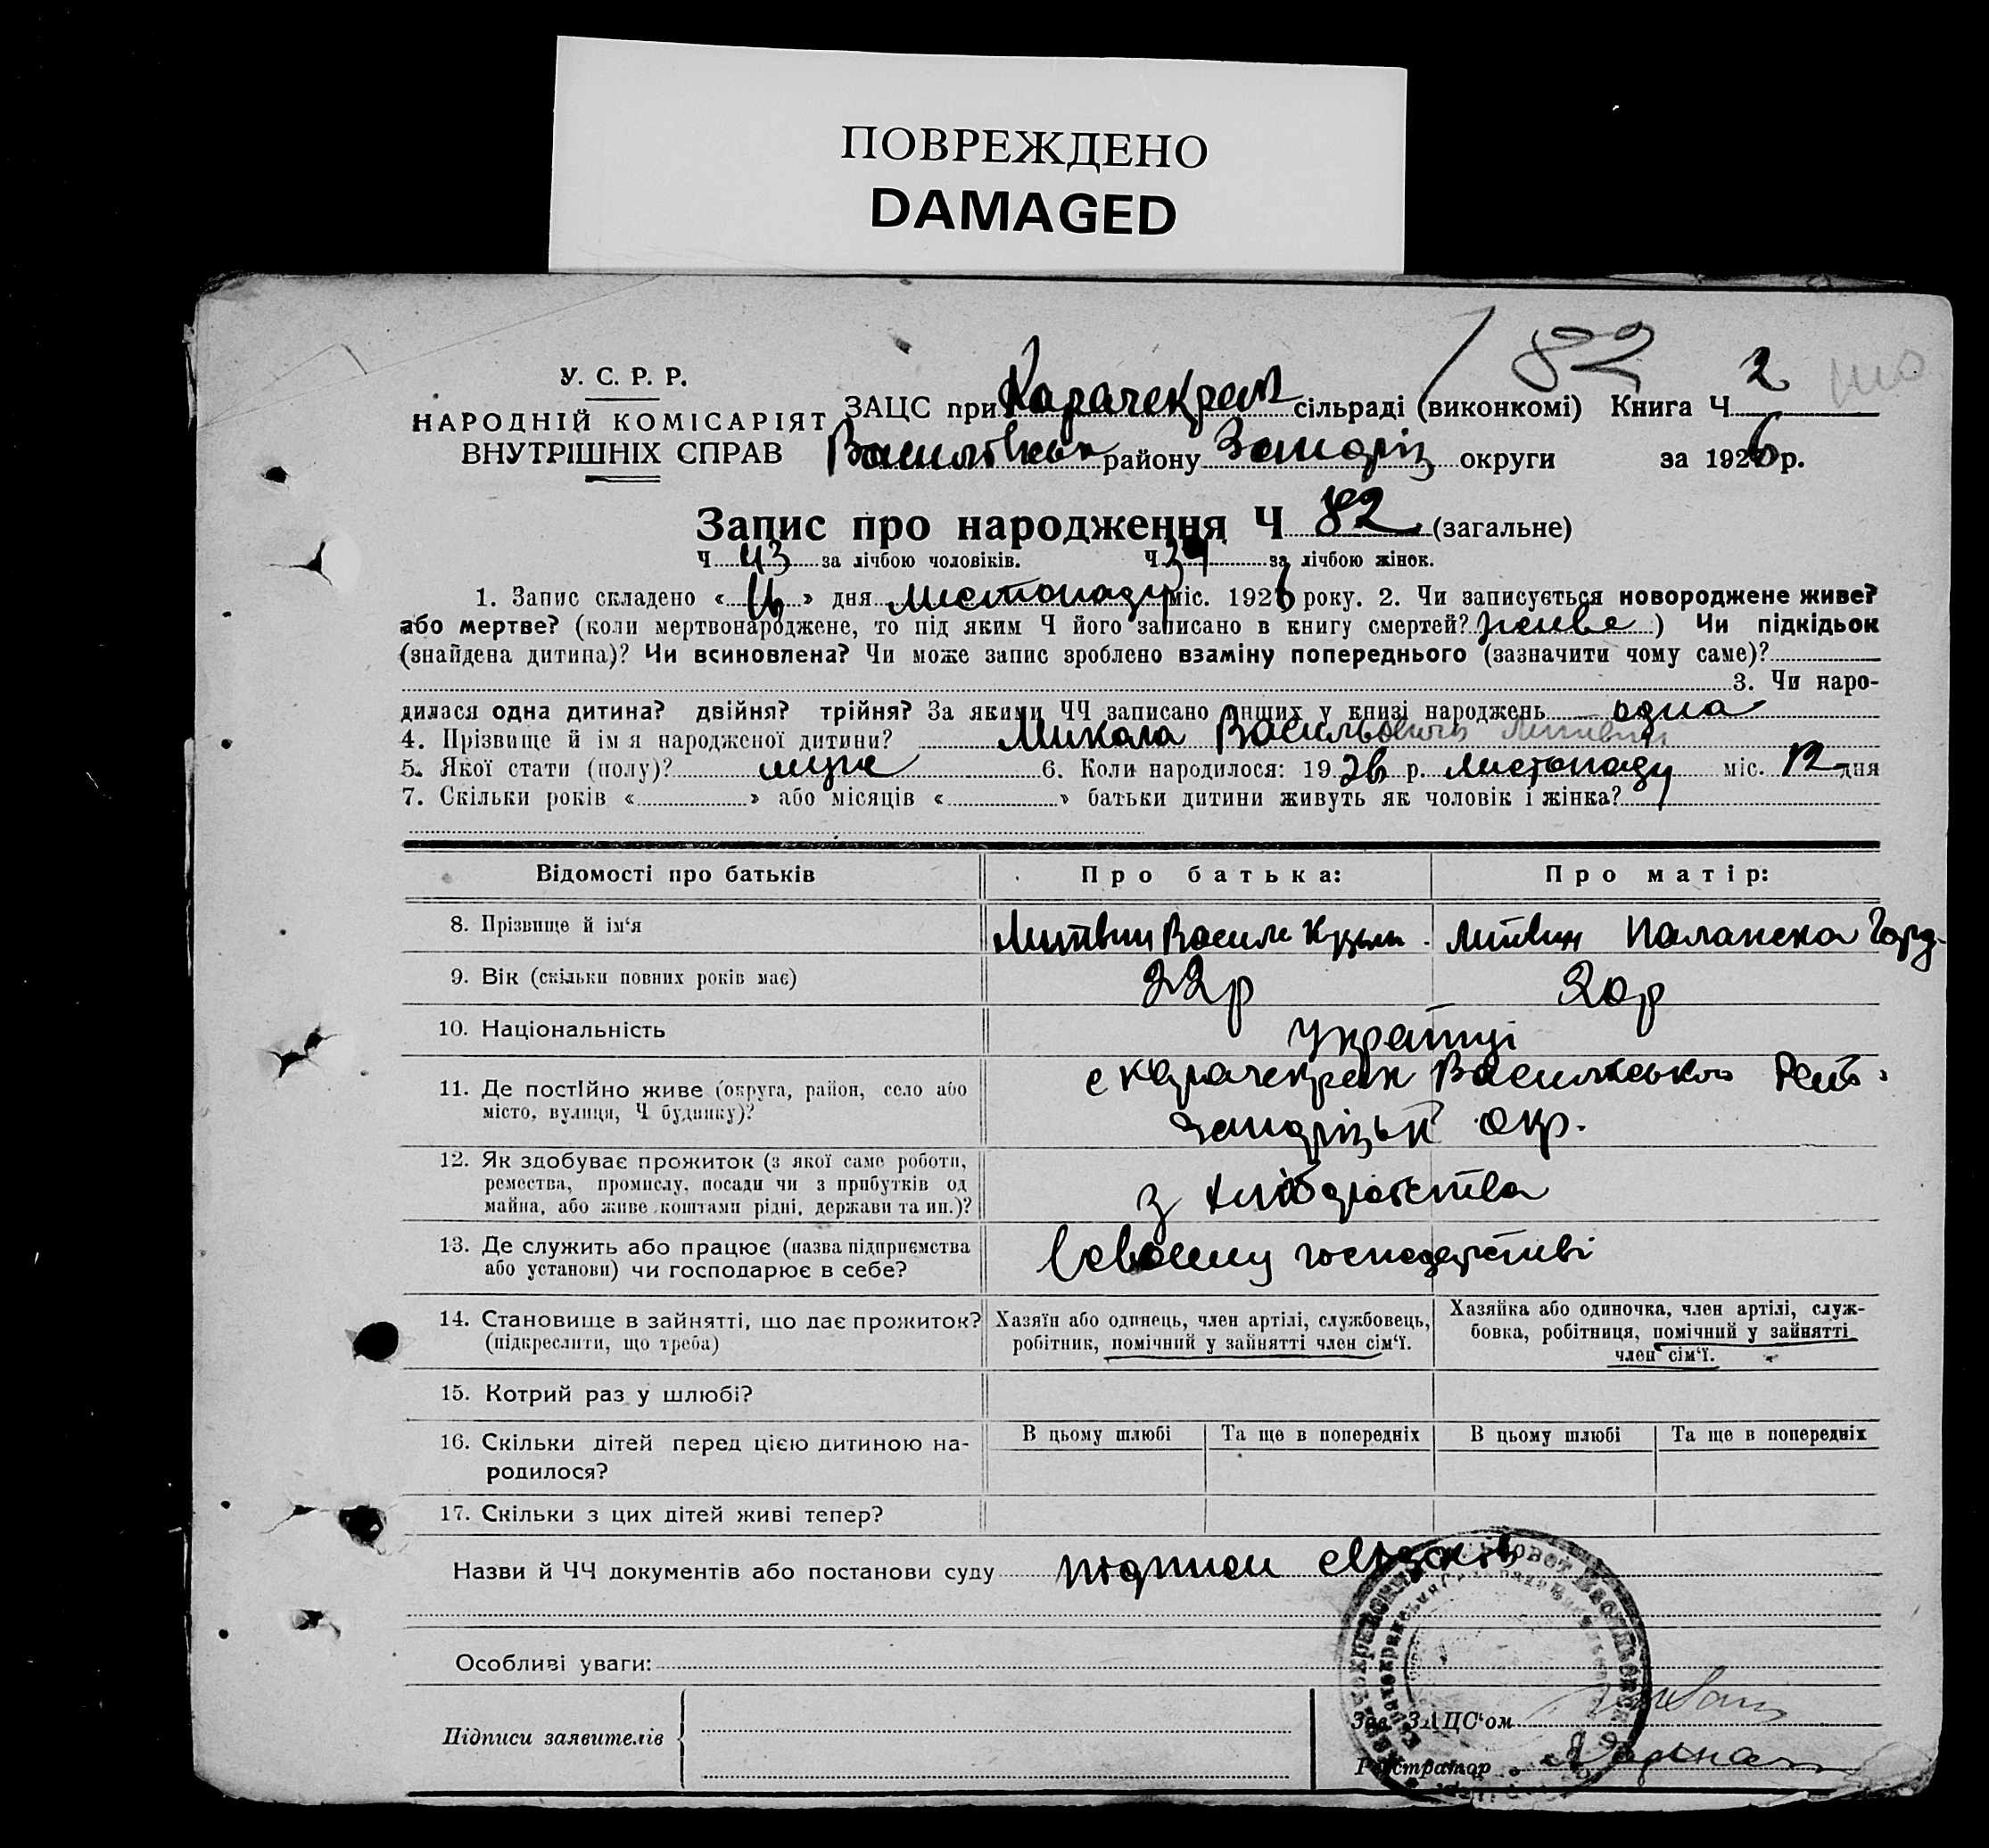 ПОВРЕЖДЕНО
DAMAGED
182
У. С. Р. Р.
НАРОДНІЙ КОМІСАРІЯТ
ВНУТРІШНІХ СПРАВ
ЗАЦС при Карачекрак сільраді (виконкомі) Книга Ч 2
Василівськ району Запоріз округи за 1926 р.
Запис про народження Ч 82 (загальне)
Ч 43 за лічбою чоловіків. Ч за лічбою жінок.
1. Запис складено « 16 » дня листопаду міс. 1926 року. 2. Чи записується новороджене живе?
або мертве? (коли мертвонароджене, то під яким Ч його записано в книгу смертей? живе ) Чи підкідьок
(знайдена дитина)? Чи всиновлена? Чи може запис зроблено взаміну попереднього (зазначити чому саме)?
3. Чи наро-
дилася одна дитина? двійня? трійня? За якими ЧЧ записано инших у книзі народжень одна
4. Прізвище й ім я народженої дитини? Микола Васильович Литвин
5. Якої стати (полу)? муж 6. Коли народилося: 1926 р. листопаду міс. 12 дня
7. Скільки років « » або місяців « » батьки дитини живуть як чоловік і жінка?
Відомості про батьків Про батька: Про матір:
8. Прізвище й ім‘я Литвин Василь Кузьм. Литвин Палажка Горд.
9. Вік (скільки повних років має) 22р 20р
10. Національність Українці
11. Де постійно живе (округа, район, село або
місто, вулиця, Ч будинку)?
с Карачекрак Василівсько
Запорізьк окр.
12. Як здобуває прожиток (з якої саме роботи,
ремества, промислу, посади чи з прибутків од
майна, або живе коштами рідні, держави та ин.)?
з хліборобства
13. Де служить або працює (назва підприємства
або установи) чи господарює в себе?
В своєму господарстві
14. Становище в зайнятті, що дає прожиток?
(підкреслити, що треба)
Хазяїн або одинець, член артілі, службовець,
робітник, помічний у зайнятті член сім‘ї.
Хазяйка або одиночка, член артілі, служ-
бовка, робітниця, помічний у зайнятті
член сім‘ї.
15. Котрий раз у шлюбі?
16. Скільки дітей перед цією дитиною на-
родилося?
В цьому шлюбі Та ще в попередніх В цьому шлюбі Та ще в попередніх
17. Скільки з цих дітей живі тепер?
Назви й ЧЧ документів або постанови суду підписи свідків
Особливі уваги:
Підписи заявителів
Зав. ЗАЦС‘ом
Реєстратор